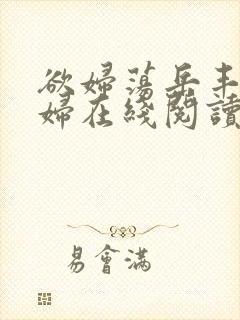 欲婦蕩岳丰
婦在綫閱讀
易會滿